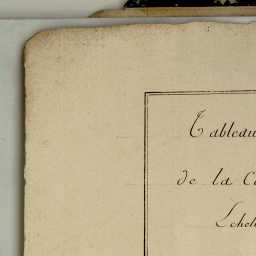 Tableau
de la C
Echel